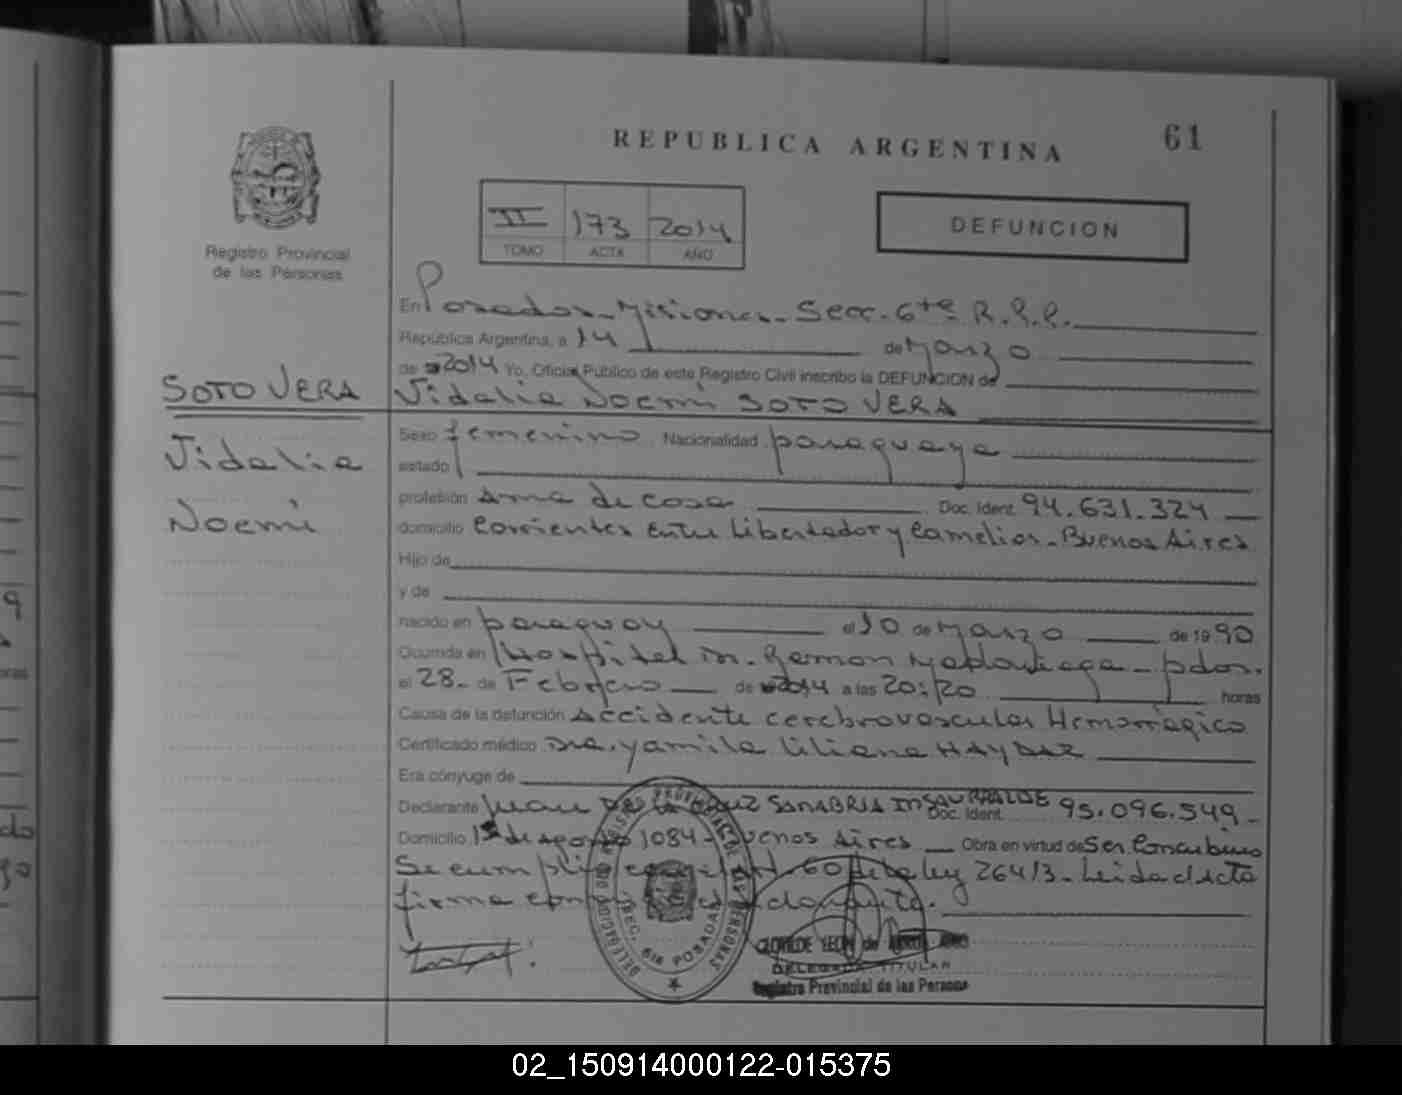 61
REPUBLICA ARGENTINA
Registro Provincial
de las Personas
II 173 2014
TOMO ACTA AÑO
DEFUNCION
En Posadas-Misiones-Secc. 6ta R.P.P.
República Argentina, a 14 de Marzo
de 2014 Yo, Oficial Público de este Registro Civil inscribo la DEFUNCION de
SOTO VERA
Vidalia Noemi SOTO VERA
Vidalia
Noemi
Sexo femenino Nacionalidad paraguaya
estado
profesión Ama de casa Doc. Ident. 94.631.324
domicilio Corrientes entre Libertador y Camelias-Buenos Aires
Hijo de
y de
nacido en paraguay el 10 de Marzo de 1990
Ocurrida en Hospital Dr. Ramon Madariaga - pdas.
el 28- de Febrero de 2014 a las 20:20 horas
Causa de la defunción Accidente cerebrovascular Hemorragico
Certificado médico Dra. Yamila Liliana HAYDAR
Era cónyuge de
Declarante Juan DE LA CRUZ SANABRIA INSAURRALDE Doc. Ident. 95.096.549-
Domicilio 1º de agosto 1084- Buenos Aires Obra en virtud de Ser Concubino
Se cumplio con el art. 60 de la ley 26413- Leida el acta
firma el declarante.
REGISTRO PROVINCIAL DE LAS PERSONAS
DELEGACION
SEC. 6ta POSADAS
CLOTILDE LEON de
DELEGADA TITULAR
Registro Provincial de las Personas
02_150914000122-015375